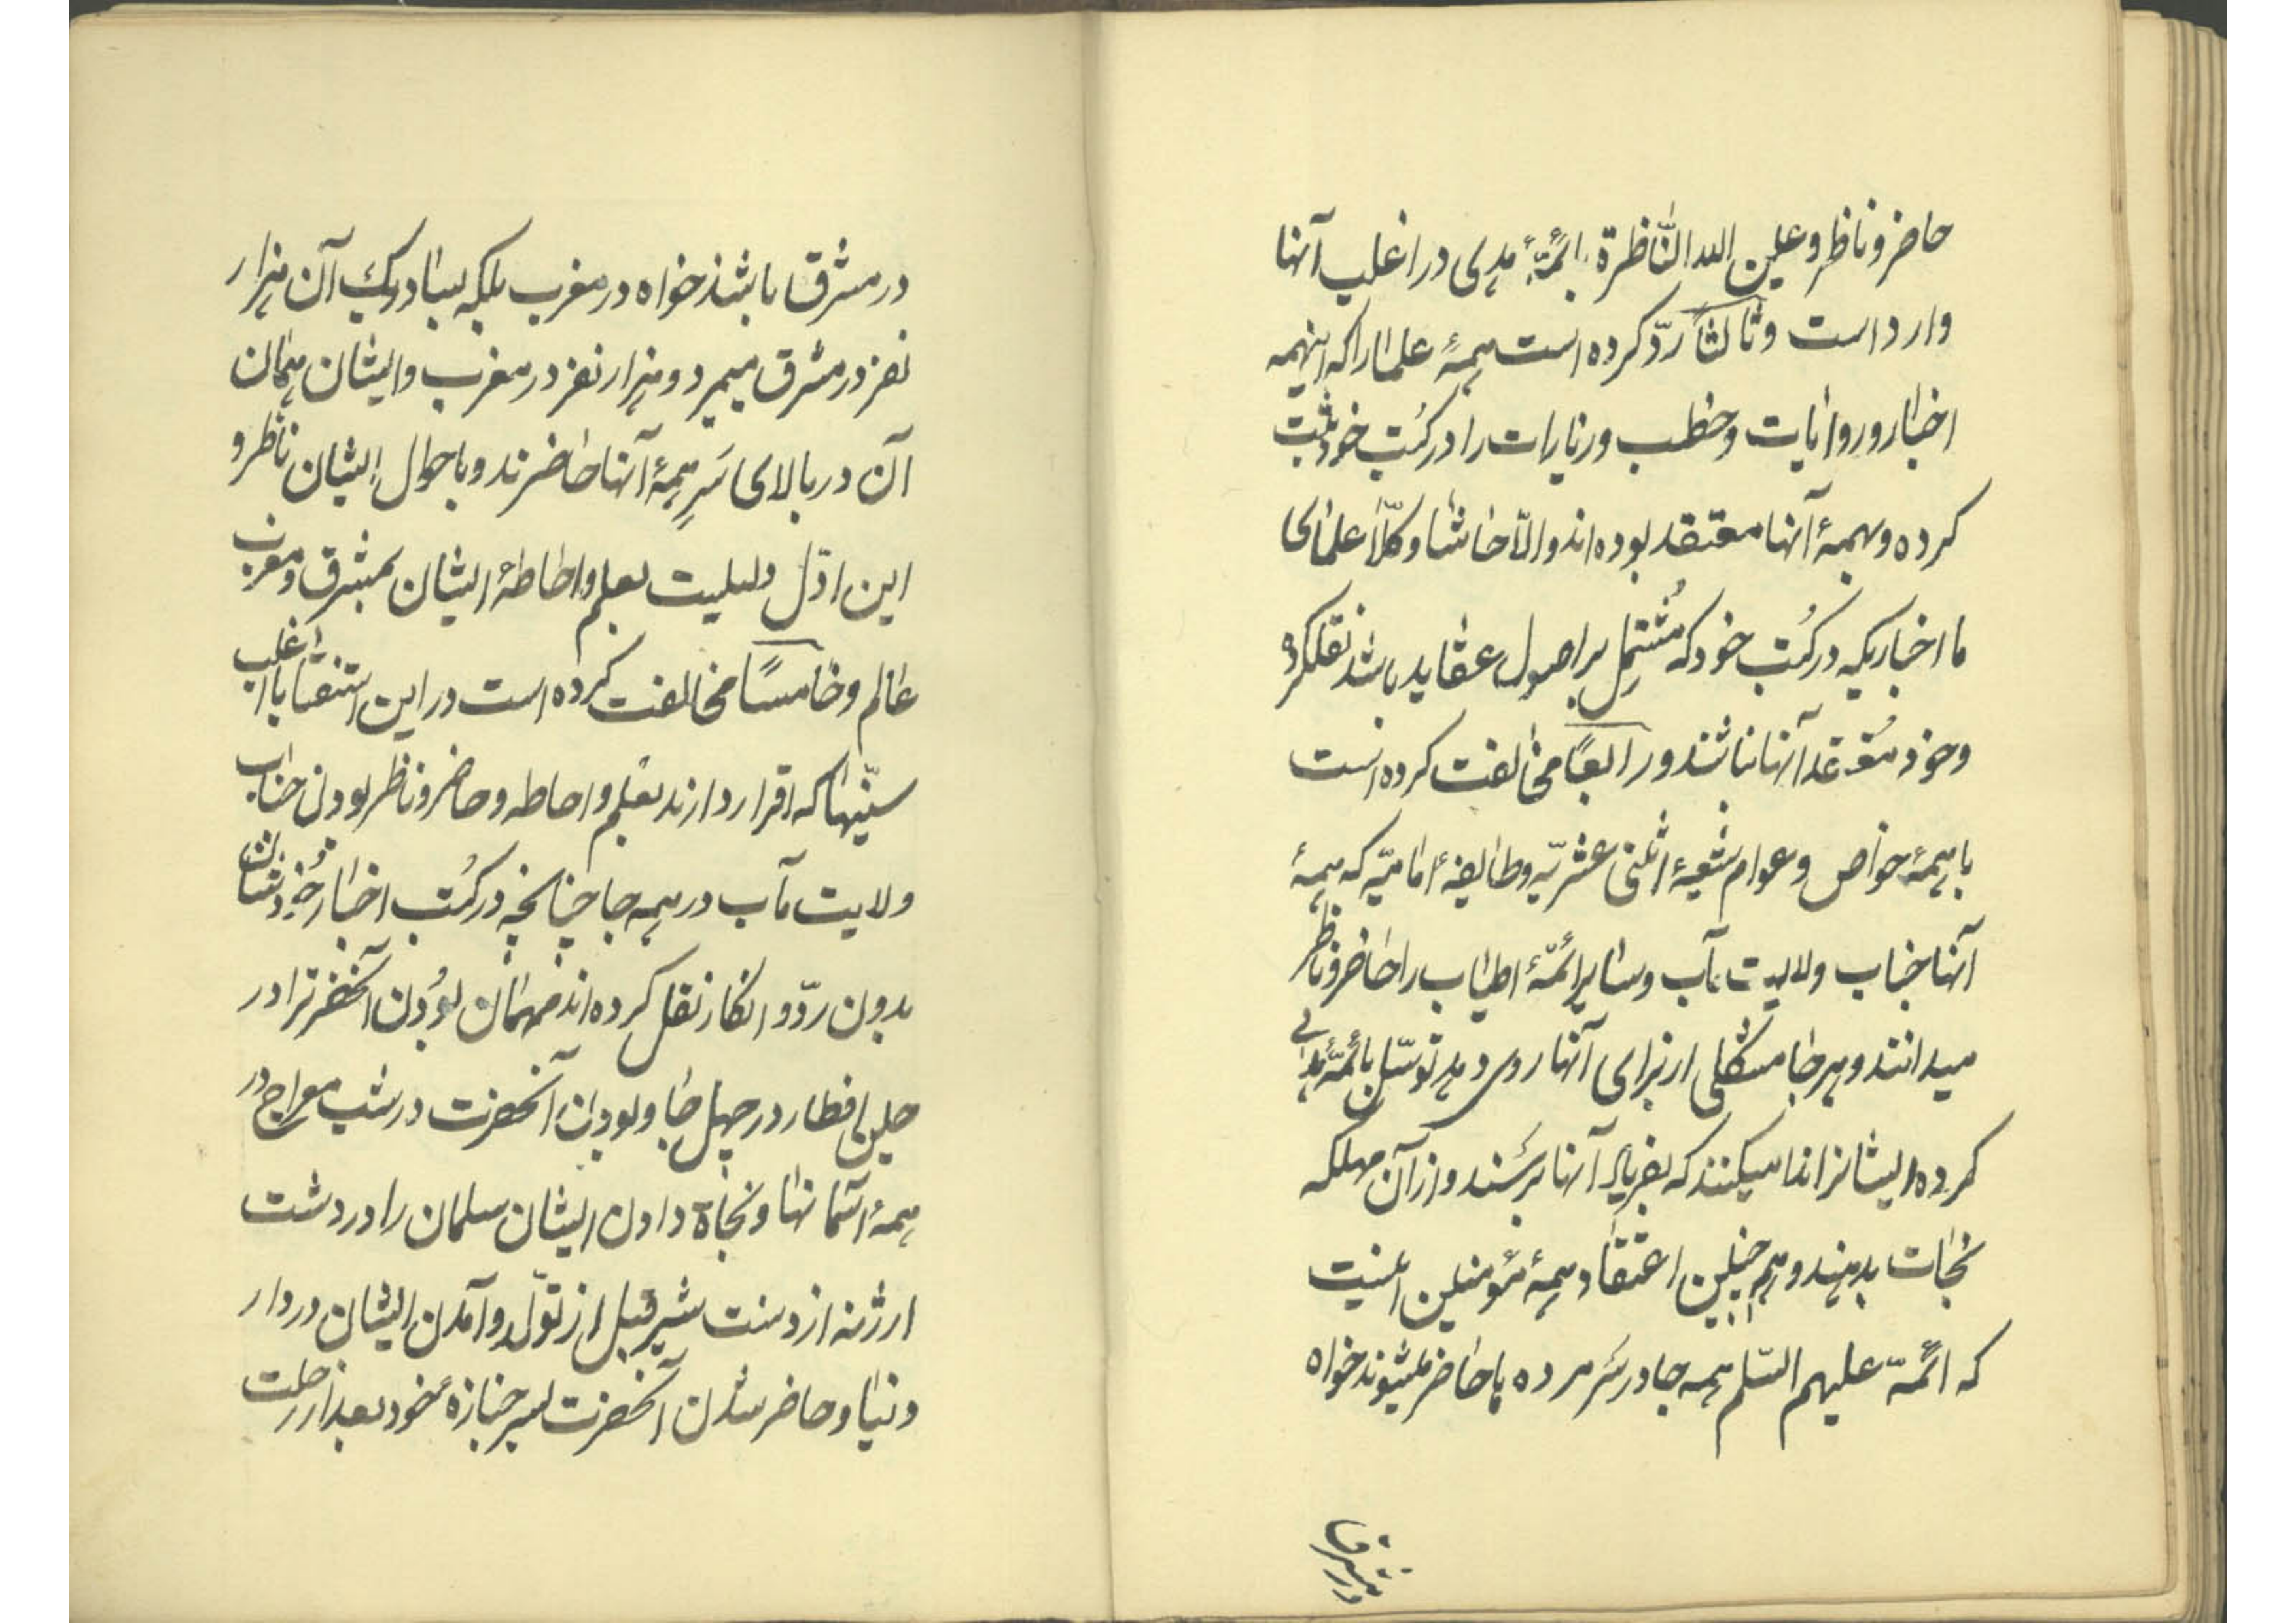 حاضر و ناظر و عین الله النّاظرة بائمّۀ هدی در اغلب آنها
وارد است و ثالثاً ردّ کرده است همۀ علما را که اینهمه
اخبار و روایات و خطب و زیارات را در کتب خود ثبت
کرده و بهمۀ آنها معتقد بوده‌اند و الّا حاشا و کلّا علمای
ما اخباریکه در کُتب خود که مُشتمل بر اصول عقاید باشد نقلکرده
و خود مُعتقد آنها نباشند و رابعًا مخالفت کرده است
با همۀ خواص و عوام شیعۀ اثنی عشریّه و طایفۀ امامیّه که همۀ
آنها جناب ولایت مآب و سایر ائمّۀ اطیاب را حاضر و ناظر
میدانند و هر جا مشکلی از برای آنها روی دهد توسّل بائمّۀ هدی
کرده ایشانرا ندا میکنند که بفریاد آنها برسند و از آن مهلکه
نجات بدهند و هم چنین اعتقاد همۀ مؤمنین اینست
که ائمّه علیهم السّلم همه جا در سَر مرده ها حاضر میشوند خواه
در مشرق
در مشرق باشد خواه در مغرب بلکه بسا در یک آن هزار
نفر در مشرق میمیرد و هزار نفر در مغرب و ایشان همان
آن در بالای سَرِ همۀ آنها حاضرند و باحوال ایشان ناظر و
این ادّل دلیلیت بعلم و احاطۀ ایشان بمشرق و مغرب
عالم و خامسًا مخالفت کرده است در این استفتا با اغلب
سنّیها که اقرار دارند بعلم و احاطه و حاضر و ناظر بودن جناب
ولایت مآب در همه جا چنانچه در کُتب اخبار خودشان
بدون ردّ و انکار نقل کرده‌اند مهمان بودن آنحضرترا در
حین افطار در چهل جا و بودن آنحضرت در شب معراج در
همۀ آسمانها و نجاة دادن ایشان سلمان را در دشت
ارژنه از دست شیر قبل از تولّد و آمدن ایشان در دار
دنیا و حاضر شدن آنحضرت بسر جنازۀ خود بعد از رحلت